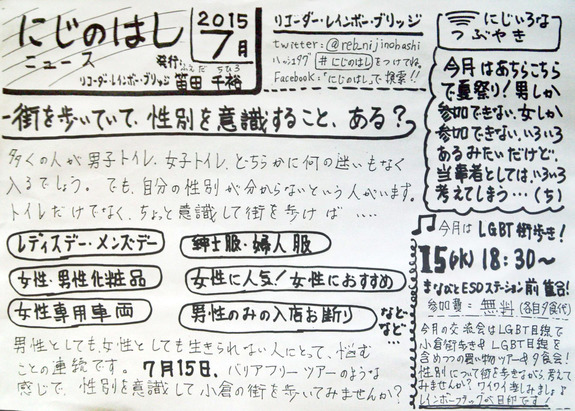 にじのはし
ニュース
2015
7月
発行:
リコーダー・レインボー・ブリッジ
ふえだ ちひろ
笛田 千裕
リコーダー・レインボー・ブリッジ
twitter: @reb_nijinohashi
ハッシュタグ #にじのはし をつけてね。
Facebook:「にじのはし」で検索!!
にじいろな
つぶやき
今月はあちらこちら
で夏祭り!男しか
参加できない、女しか
参加できない、いろいろ
あるみたいだけど、
当事者としては、いろいろ
考えてしまう…(ち)
街を歩いていて、性別を意識すること、ある?
多くの人が男子トイレ、女子トイレ、どちらかに何の迷いもなく
入るでしょう。でも、自分の性別が分からないという人がいます。
トイレだけでなく、ちょっと意識して街を歩けば ‥‥
レディスデー・メンズデー
紳士服・婦人服
女性・男性化粧品
女性に人気!女性におすすめ
女性専用車両
男性のみの入店お断り
など
など
…
男性としても、女性としても生きられない人にとって、悩む
ことの連続です。7月15日、バリアフリーツアーのような
感じで、性別を意識して小倉の街を歩いてみませんか?
♫今月はLGBT街歩き!
15(水)18:30〜
まなびとESDステーション前 集合!
参加費=無料(各自夕食代)
今月の交流会はLGBT目線で
小倉街歩き&LGBT目線を
含めつつの買い物ツアー&夕食会!
性別について街を歩きながら考えて
みませんか?ワイワイ楽しみましょう
レインボーフラッグが目印です!